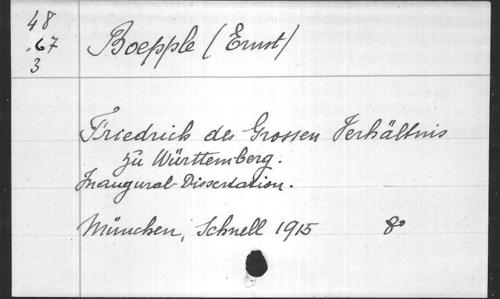 48
.67
3
Boepple (Ernst)
Friedrich des Grossen Verhältnis
zu Württemberg.
Inaugural-Dissertation.
München, Schnell 1915 8°